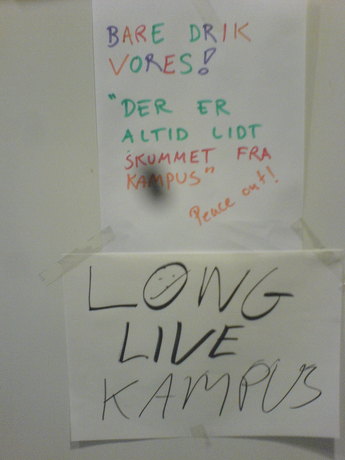 BARE DRIK
VORES!
"DER ER
ALTID LIDT
SKUMMET FRA
KAMPUS"
Peace out!
LONG
LIVE
KAMPUS